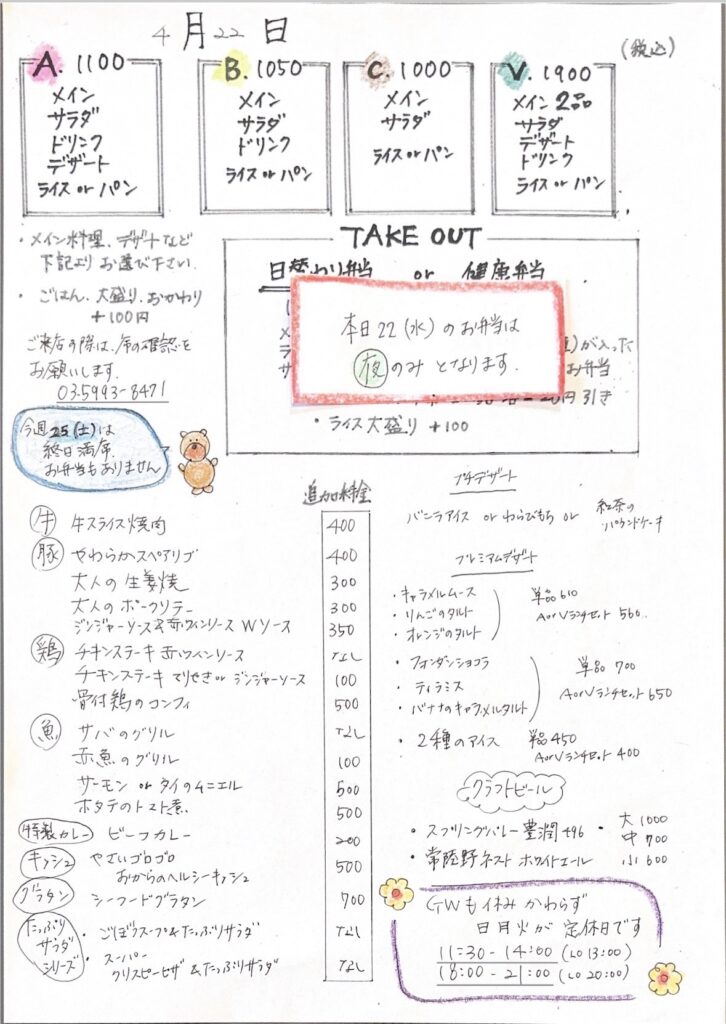 4月22日
(税込)
A. 1100
メイン
サラダ
ドリンク
デザート
ライス or パン
B. 1050
メイン
サラダ
ドリンク
ライス or パン
C. 1000
メイン
サラダ
ライス or パン
V. 1900
メイン 2品
サラダ
デザート
ドリンク
ライス or パン
・メイン料理、デザートなど
下記よりお選び下さい.
・ごはん、大盛り、おかわり
+100円
ご来店の際は、席の確認を
お願いします.
03-5993-8471
今週25(土)は
終日満席.
お弁当もありません
TAKE OUT
日替わり弁当 or 健康弁当
本日22(水)のお弁当は
夜のみとなります.
が入った
お弁当
円引き
・ライス大盛り +100
追加料金
牛 牛スライス焼肉 400
豚 やわらかスペアリブ 400
大人の生姜焼 300
大人のポークソテー 300
ジンジャーソース&赤ワインソース Wソース 350
鶏 チキンステーキ 赤ワインソース なし
チキンステーキ てりやき or ジンジャーソース 100
骨付鶏のコンフィ 500
魚 サバのグリル なし
赤魚のグリル 100
サーモン or タイのムニエル 500
ホタテのトマト煮 500
特製カレー ビーフカレー 200
キッシュ やさいゴロゴロ
おからのヘルシーキッシュ 500
グラタン シーフードグラタン 700
たっぷりサラダシリーズ
・ごぼうスープ&たっぷりサラダ なし
・スーパー
クリスピーピザ &たっぷりサラダ なし
プチデザート
バニラアイス or わらびもち or 紅茶のパウンドケーキ
プレミアムデザート
・キャラメルムース
・りんごのタルト
・オレンジのタルト
単品 610
AorVランチセット 560
・フォンダンショコラ
・ティラミス
・バナナのキャラメルタルト
単品 700
AorVランチセット 650
・2種のアイス 単品 450
AorVランチセット 400
クラフトビール
・スプリングバレー 豊潤496
・常陸野ネスト ホワイトエール
・大 1000
中 700
小 600
GWも休みかわらず
日月火が定休日です
11:30 - 14:00 (LO 13:00)
18:00 - 21:00 (LO 20:00)